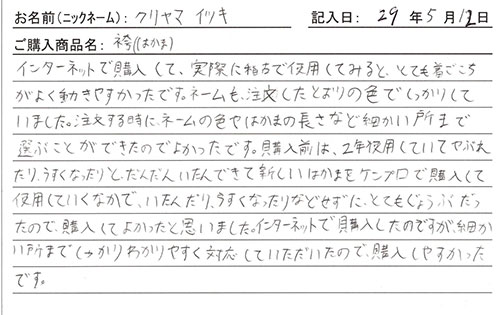 お名前(ニックネーム): クリヤマ イツキ 記入日: 29 年 5 月 12 日
ご購入商品名: 袴(はかま)
インターネットで購入して、実際に稽古で使用してみると、とても着ごこち
がよく動きやすかったです。ネームも、注文したとおりの色でしっかりして
いました。注文する時に、ネームの色やはかまの長さなど細かい所まで
選ぶことができたのでよかったです。購入前は、2年使用していてやぶれ
たり、うすくなったりと、だんだんいたんできて新しいはかまをケンプロで購入して
使用していくなかで、いたんだり、うすくなったりなどせずに、とてもじょうぶだっ
たので、購入してよかったと思いました。インターネットで購入したのですが、細か
い所までしっかりわかりやすく対応していただいたので、購入しやすかった
です。